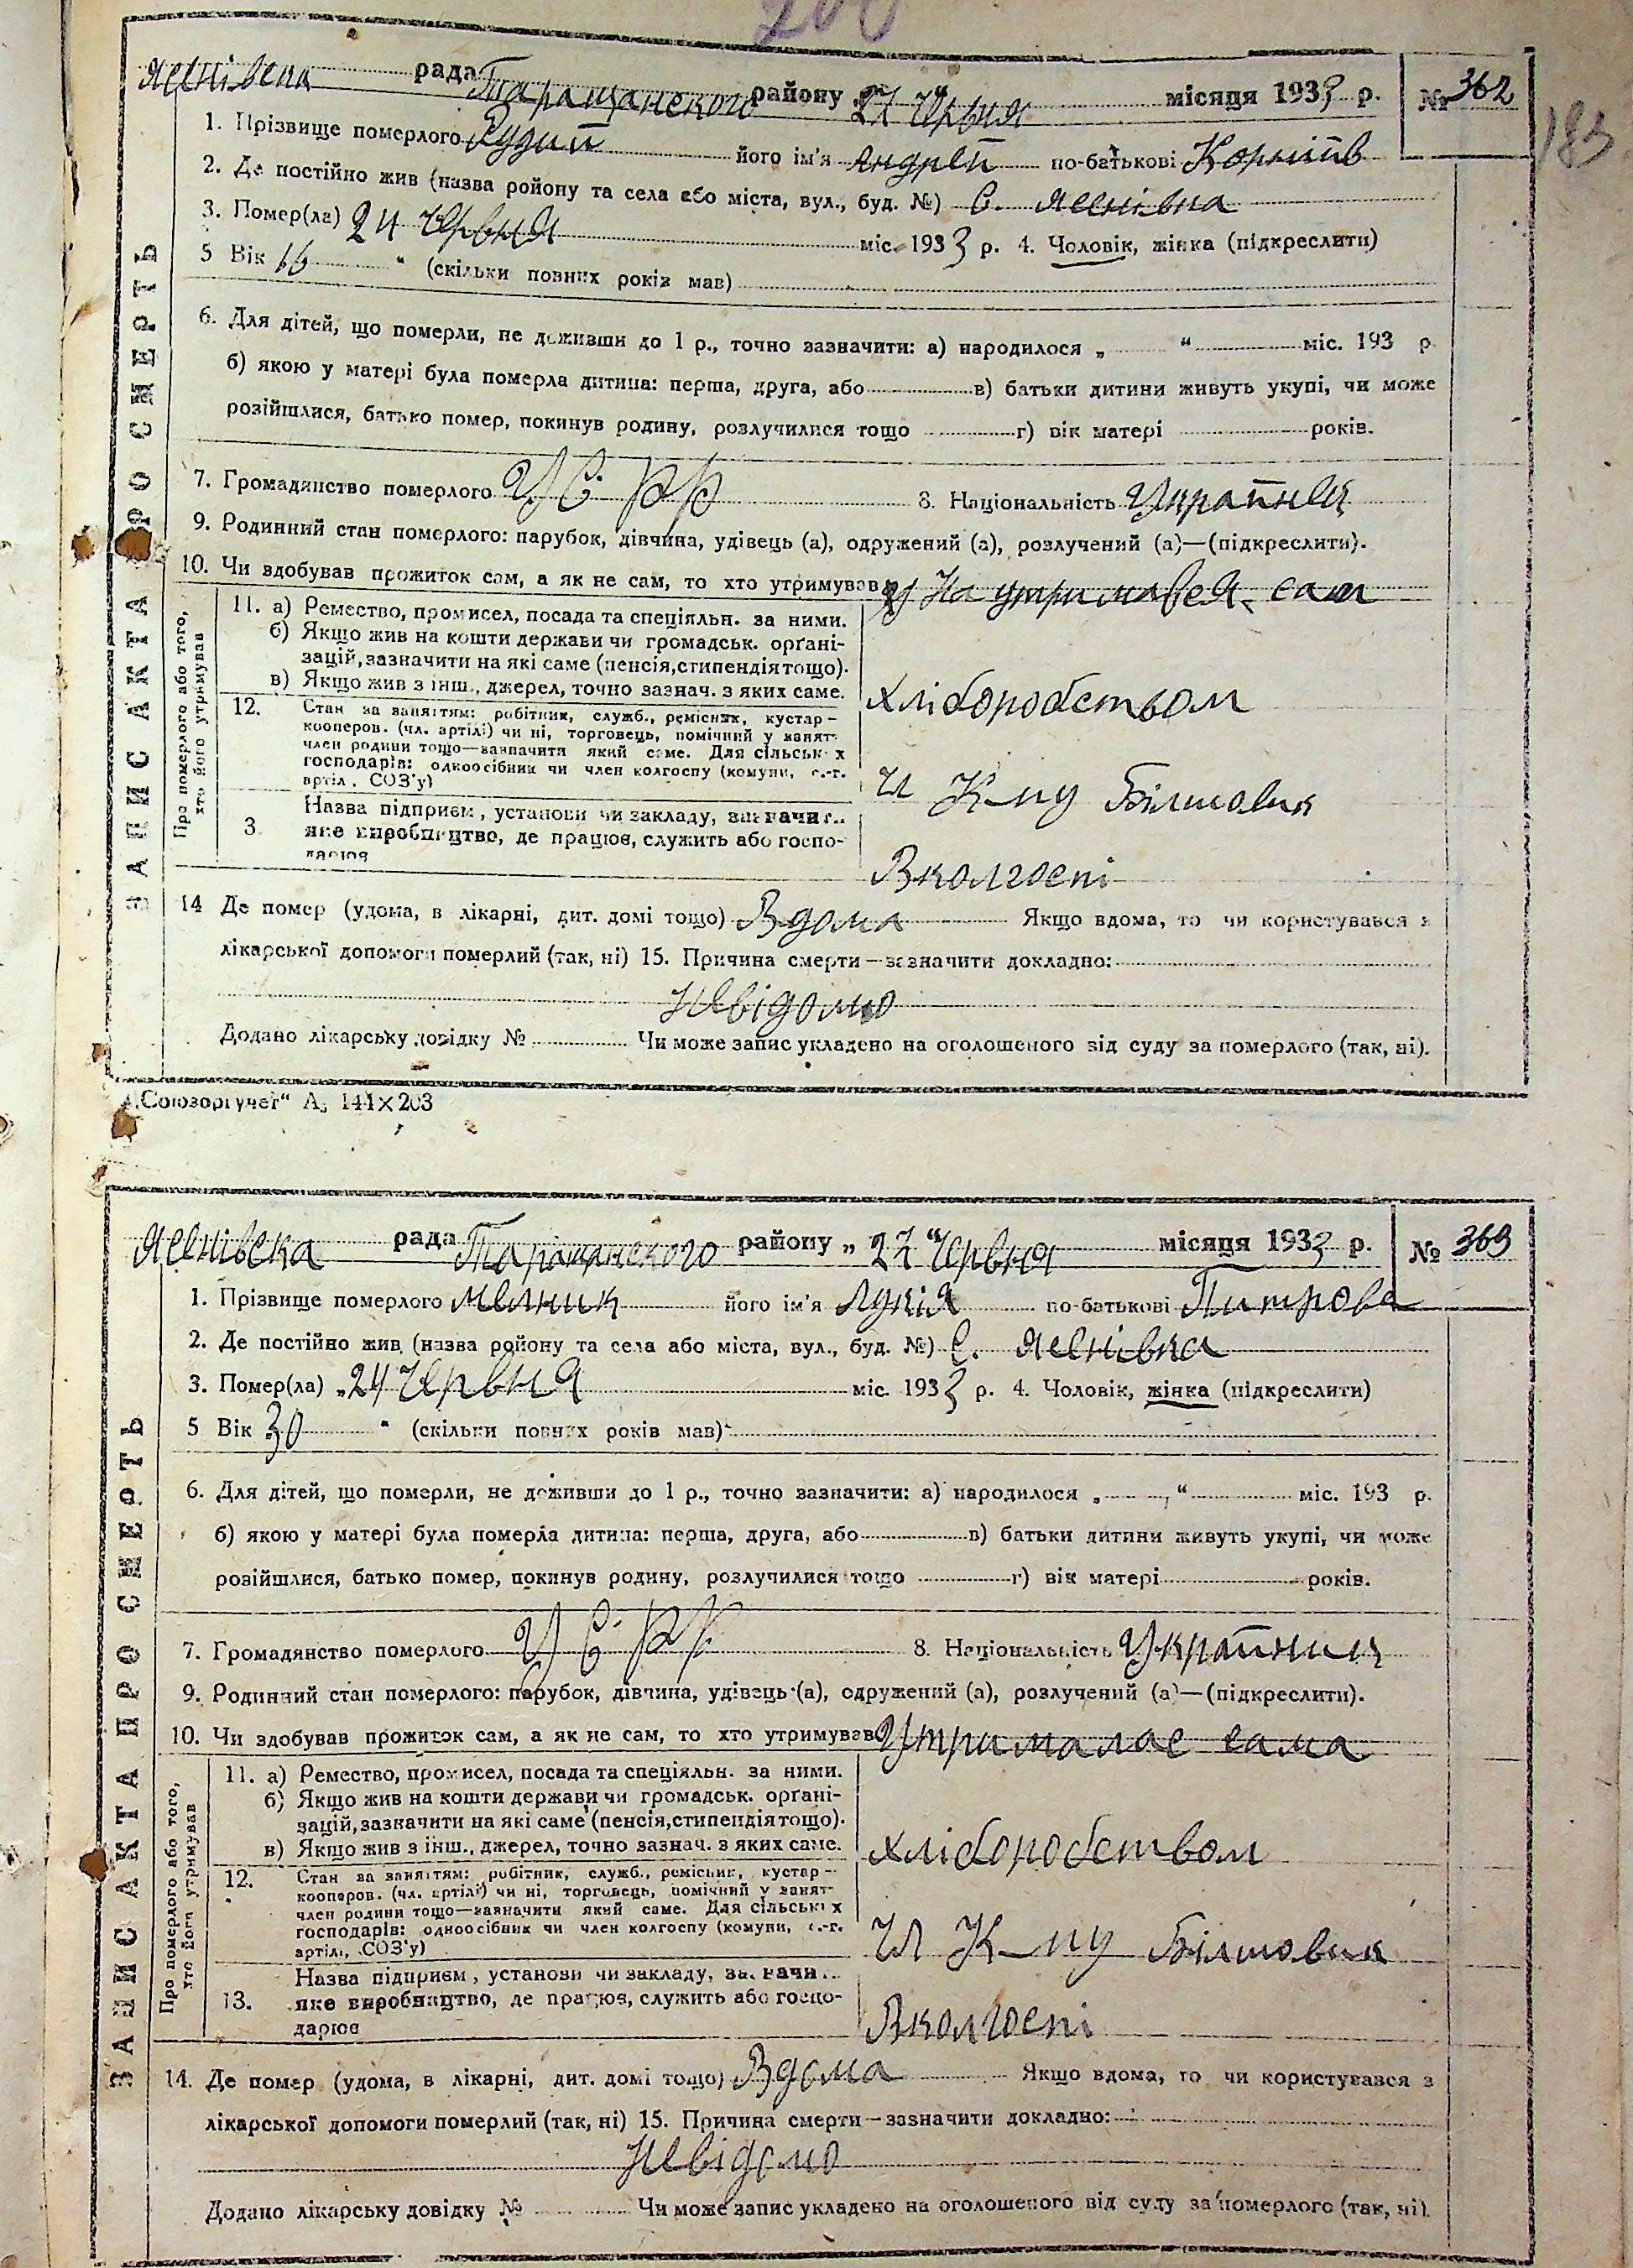 200
183
Яснівська рада Таращанского району „27" Червня місяця 1933 р. № 362
1. Прізвище померлого його ім'я Андрей по-батькові Корніїв
2. Де постійно жив (назва ройону та села або міста, вул., буд. №) С. Яснівка
3. Помер(ла) 24 Червня міс. 1933 р. 4. Чоловік, жінка (підкреслити)
5 Вік " (скільки повних років мав)
6. Для дітей, що померли, не доживши до 1 р., точно зазначити: а) народилося „ " міс. 193 р
б) якою у матері була померла дитина: перша, друга, або в) батьки дитини живуть укупі, чи може
розійшлися, батько помер, покинув родину, розлучилися тощо г) вік матері років.
7. Громадянство померлого УСРР 8. Національність Українец
9. Родинний стан померлого: парубок, дівчина, удівець (а), одружений (а), розлучений (а)—(підкреслити).
10. Чи здобував прожиток сам, а як не сам, то хто утримував На утримався сам
11. а) Ремество, промисел, посада та спеціяльн. за ними.
б) Якщо жив на кошти держави чи громадськ. орґані-
зацій, зазначити на які саме (пенсія, стипендія тощо).
в) Якщо жив з інш., джерел, точно зазнач. з яких саме.
Хліборобством
12. Стан за заняттям: робітник, служб., ремісник, кустар—
кооперов. (чл. артілі) чи ні, торговець, помічний у занят-
член родини тощо—зазначити який саме. Для сільських
господарів: одноосібник чи член колгоспу (комуни, с.-г.
артіл. СОЗ'у)
Чл К-пу Більшовик
3 Назва підприєм, установи чи закладу, зазначи..
яке виробництво, де працює, служить або госпо-
дарює
В колгоспі
14 Де помер (удома, в лікарні, дит. домі тощо) Вдома Якщо вдома, то чи користувався з
лікарської допомоги померлий (так, ні) 15. Причина смерти—зазначити докладно:
Невідомо
Додано лікарську довідку № Чи може запис укладено на оголошеного від суду за померлого (так, ні).
ЗАПИС АКТА ПРО СМЕРТЬ
Про померлого або того,
хто його утримував
„Союзоргучет" А5 144×203
Яснівска рада Таращанского району „27" Червня місяця 1933 р. № 363
1. Прізвище померлого Мелник його ім'я Лукія по-батькові Питрова
2. Де постійно жив (назва ройону та села або міста, вул., буд. №) С. Яснівка
3. Помер(ла) „24 Червня міс. 1933 р. 4. Чоловік, жінка (підкреслити)
5 Вік 30 " (скільки повних років мав)
6. Для дітей, що померли, не доживши до 1 р., точно зазначити: а) народилося „ " міс. 193 р.
б) якою у матері була померла дитина: перша, друга, або в) батьки дитини живуть укупі, чи може
розійшлися, батько помер, покинув родину, розлучилися тощо г) вік матері років.
7. Громадянство померлого УСРР 8. Національність Україниц
9. Родинний стан померлого: парубок, дівчина, удівець (а), одружений (а), розлучений (а)—(підкреслити).
10. Чи здобував прожиток сам, а як не сам, то хто утримував Утрималас сама
11. а) Ремество, промисел, посада та спеціяльн. за ними.
б) Якщо жив на кошти держави чи громадськ. орґані-
зацій, зазначити на які саме (пенсія, стипендія тощо).
в) Якщо жив з інш., джерел, точно зазнач. з яких саме.
Хліборобством
12. Стан за заняттям: робітник, служб., ремісник, кустар—
кооперов. (чл. артілі) чи ні, торговець, помічний у занят-
член родини тощо—зазначити який саме. Для сільських
господарів: одноосібник чи член колгоспу (комуни, с.-г.
артіл., СОЗ'у)
Чл К-пу Білшовик
13. Назва підприєм, установи чи закладу, зазначи..
яке виробництво, де працює, служить або госпо-
дарює
В колгоспі
14. Де помер (удома, в лікарні, дит. домі тощо) Вдома Якщо вдома, то чи користувався з
лікарської допомоги померлий (так, ні) 15. Причина смерти—зазначити докладно:
Невідомо
Додано лікарську довідку № Чи може запис укладено на оголошеного від суду за померлого (так, ні).
ЗАПИС АКТА ПРО СМЕРТЬ
Про померлого або того,
хто його утримував